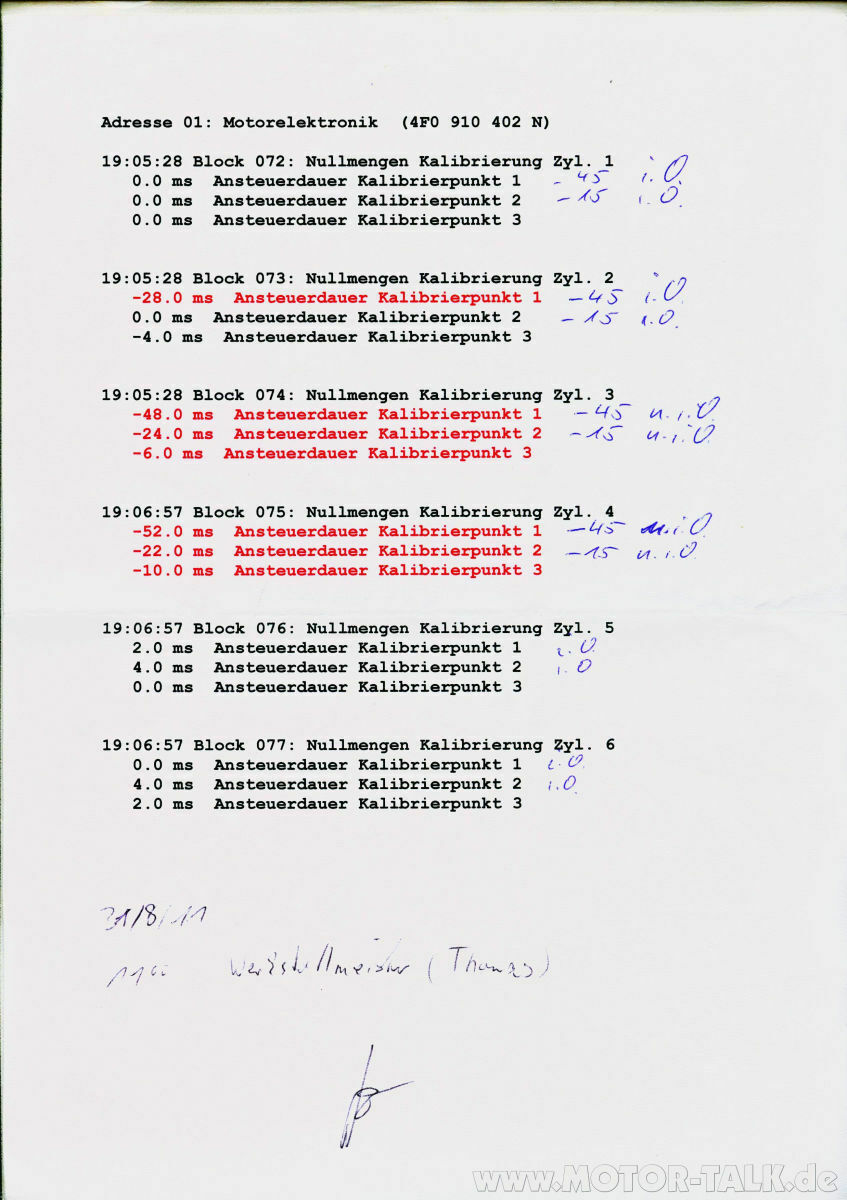 Adresse 01: Motorelektronik (4F0 910 402 N)
19:05:28 Block 072: Nullmengen Kalibrierung Zyl. 1 i.O.
0.0 ms Ansteuerdauer Kalibrierpunkt 1 - 45
0.0 ms Ansteuerdauer Kalibrierpunkt 2 - 15 i.O.
0.0 ms Ansteuerdauer Kalibrierpunkt 3
19:05:28 Block 073: Nullmengen Kalibrierung Zyl. 2
-28.0 ms Ansteuerdauer Kalibrierpunkt 1 -45 i.O.
0.0 ms Ansteuerdauer Kalibrierpunkt 2 -15 i.O.
-4.0 ms Ansteuerdauer Kalibrierpunkt 3
19:05:28 Block 074: Nullmengen Kalibrierung Zyl. 3
-48.0 ms Ansteuerdauer Kalibrierpunkt 1 -45 n.i.O.
-24.0 ms Ansteuerdauer Kalibrierpunkt 2 -15 n.i.O.
-6.0 ms Ansteuerdauer Kalibrierpunkt 3
19:06:57 Block 075: Nullmengen Kalibrierung Zyl. 4
-52.0 ms Ansteuerdauer Kalibrierpunkt 1 -45 n.i.O.
-22.0 ms Ansteuerdauer Kalibrierpunkt 2 -15 n.i.O.
-10.0 ms Ansteuerdauer Kalibrierpunkt 3
19:06:57 Block 076: Nullmengen Kalibrierung Zyl. 5
2.0 ms Ansteuerdauer Kalibrierpunkt 1 i.O.
4.0 ms Ansteuerdauer Kalibrierpunkt 2 i.O
0.0 ms Ansteuerdauer Kalibrierpunkt 3
19:06:57 Block 077: Nullmengen Kalibrierung Zyl. 6
0.0 ms Ansteuerdauer Kalibrierpunkt 1 i.O.
4.0 ms Ansteuerdauer Kalibrierpunkt 2 i.O.
2.0 ms Ansteuerdauer Kalibrierpunkt 3
31/8/11
11 00 (Thomas)
www.MOTOR-TALK.de